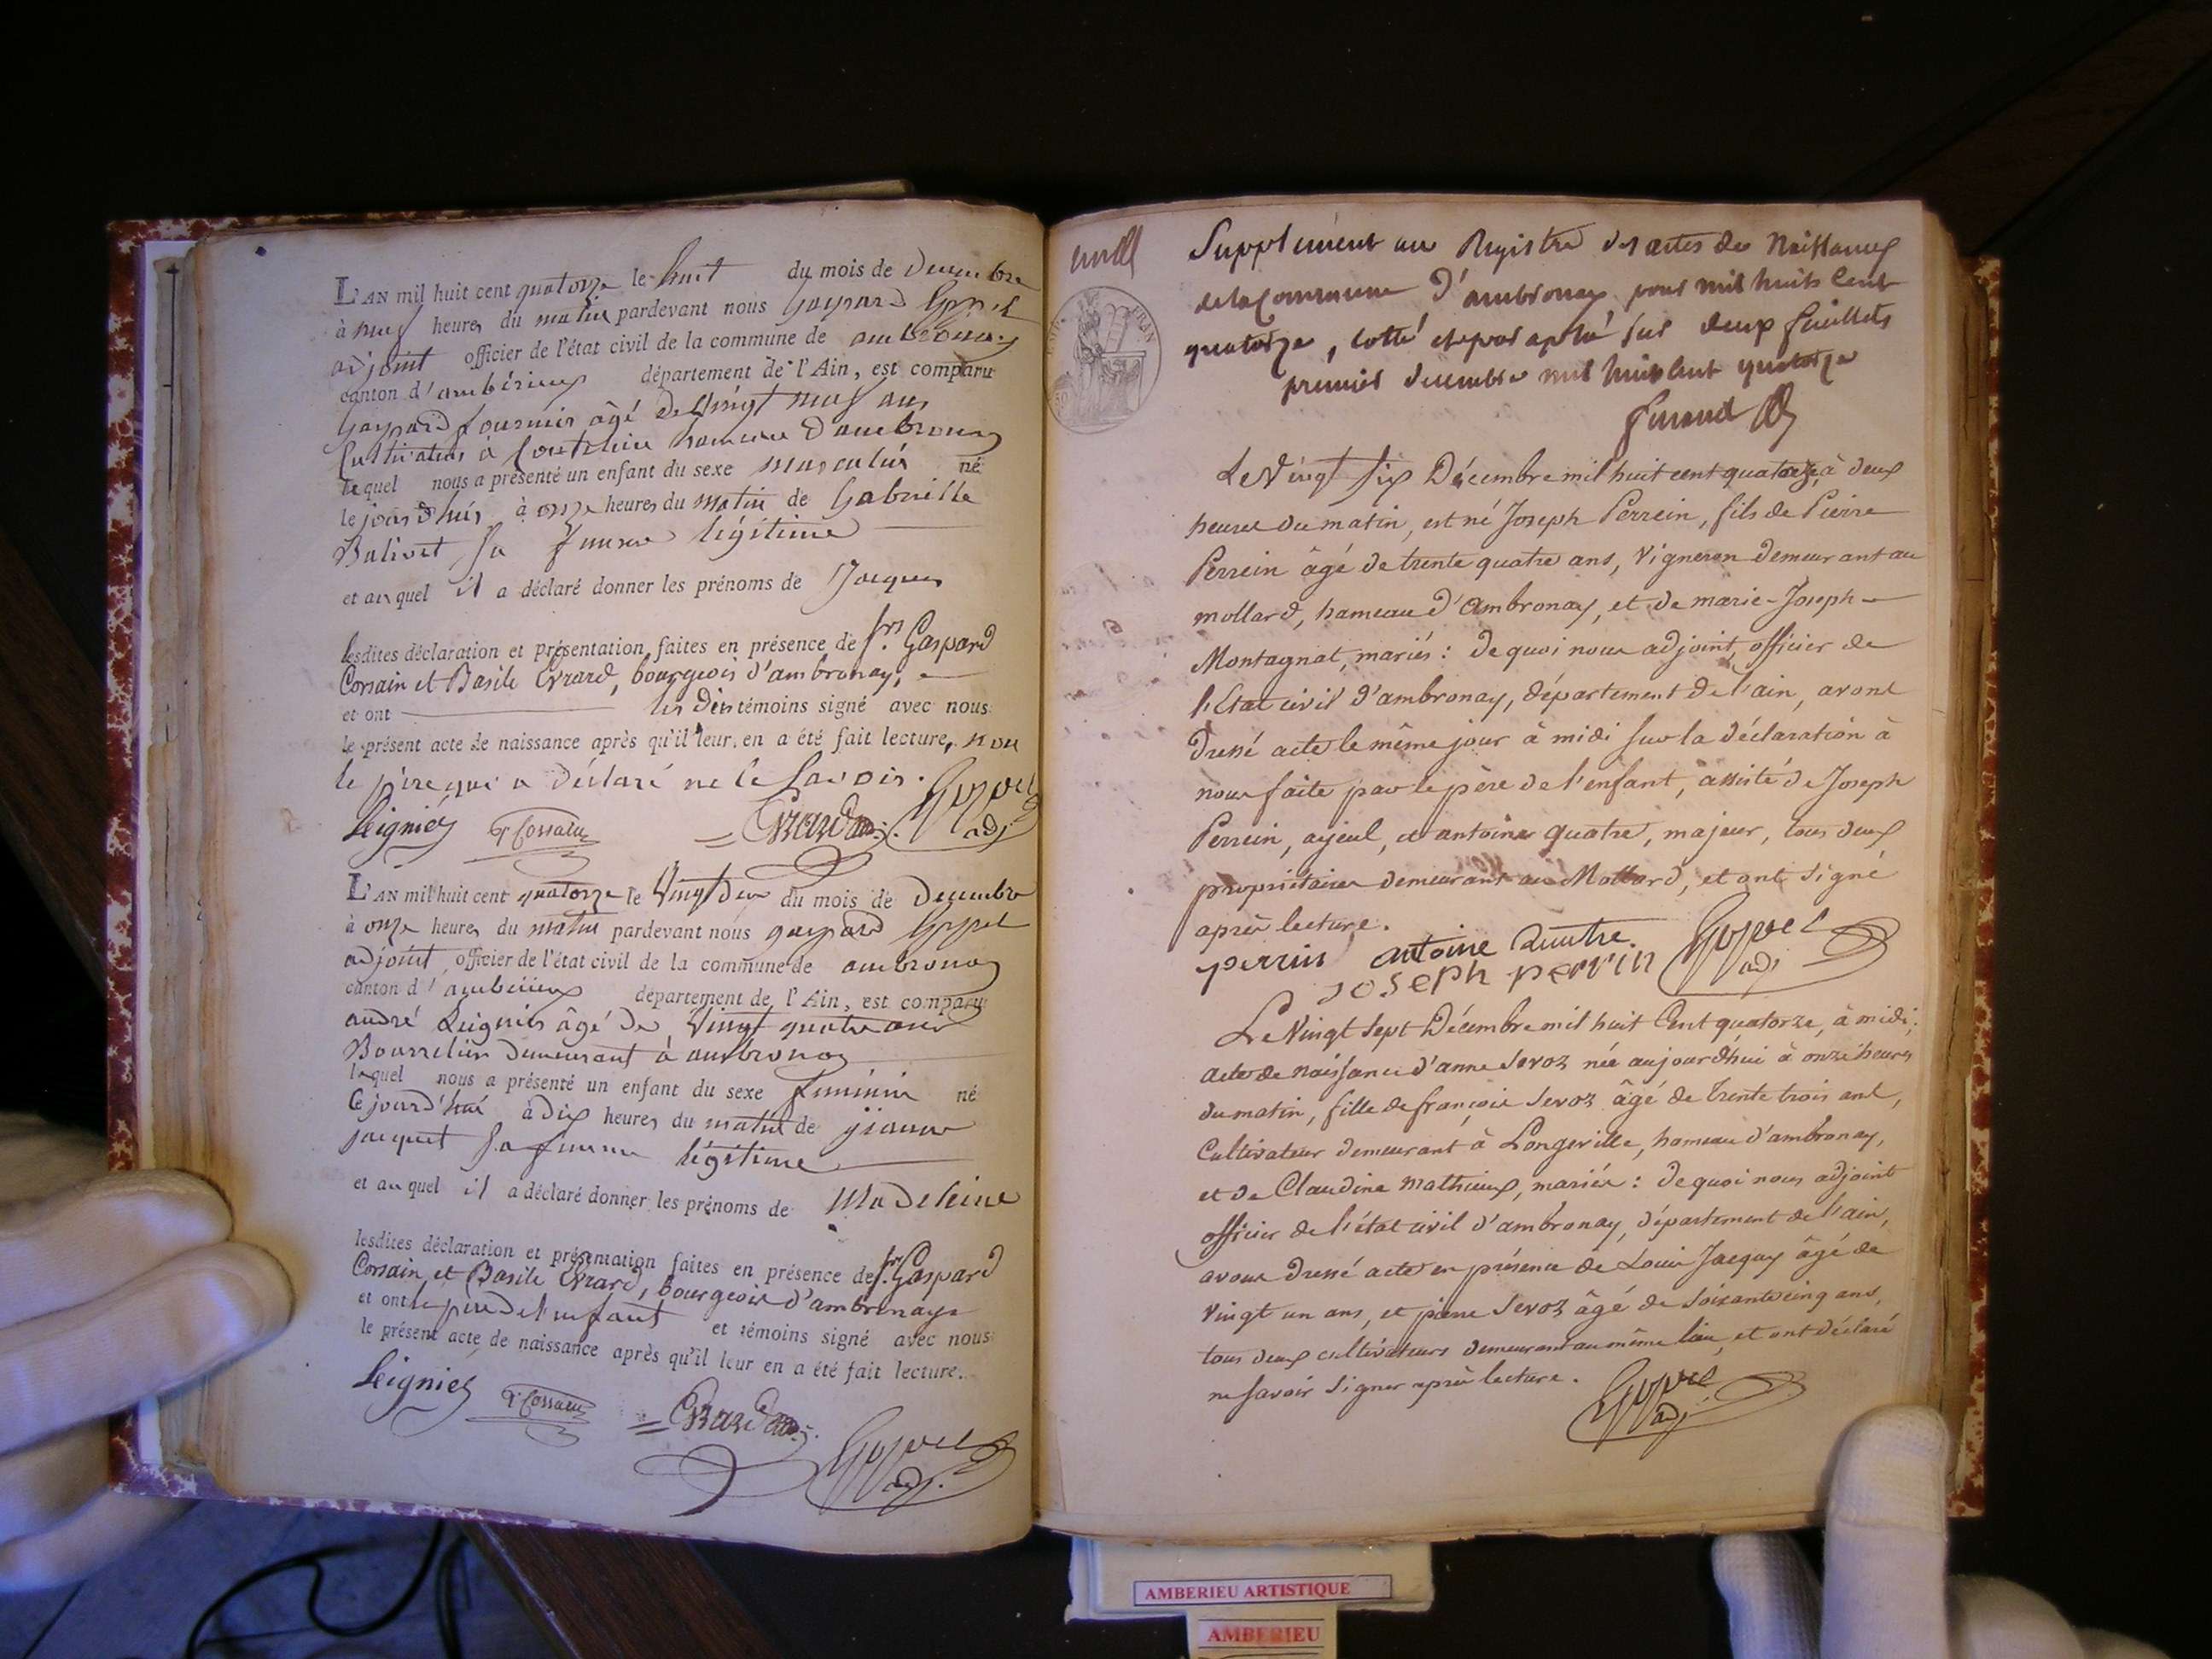 L'AN mil huit cent quatorze le huit du mois de Decembre
à neuf heures du matin pardevant nous Gaspard Goppet
adjoint officier de l'état civil de la commune de ambronay
canton d'ambérieux département de l'Ain, est comparu
Gaspard fournier âgé de Vingt neuf ans
Cultivateur à hameau d'ambronay
lequel nous a présenté un enfant du sexe masculin né
le jourd'hui à onze heures du matin de Gabrielle
Balivet sa femme légitime
et auquel il a déclaré donner les prénoms de Jacques
lesdites déclaration et présentation faites en présence de srs Gaspard
Corsain et Basile Evrard, bourgeois d'ambronay,
et ont les dits témoins signé avec nous
le présent acte de naissance après qu'il leur en a été fait lecture, non
le père qui a déclaré ne le savoir.
Leignier G Corsain Evrard Goppet
adj
L'AN mil huit cent quatorze le Vingt deux du mois de Decembre
à onze heures du matin pardevant nous gaspard Goppet
adjoint officier de l'état civil de la commune de ambronay
canton d'ambérieux département de l'Ain, est comparu
andré Leignier âgé de Vingt quatre ans
Bourrelier demeurant à ambronay
lequel nous a présenté un enfant du sexe feminin né
Ce jourd'hui à dix heures du matin de jeanne
jacquet sa femme légitime
et auquel il a déclaré donner les prénoms de Madeleine
lesdites déclaration et présentation faites en présence de srs Gaspard
Corsain et Basile Evrard, bourgeois d'ambronay
et ont le père de l'enfant et témoins signé avec nous
le présent acte de naissance après qu'il leur en a été fait lecture.
Leignier G Corsain Evrard
Goppet
adj.
Supplément au Registre des actes de Naissances
de la Commune d'ambronay pour mil huit cent
quatorze, cotté et paraphé sur deux feuillets
premier decembre mil huit cent quatorze
Le Vingt six Décembre mil huit cent quatorze, à deux
heures du matin, est né Joseph Perrein, fils de Pierre
Perrein âgé de trente quatre ans, Vigneron demeurant au
mollard, hameau d'Ambronay, et de marie-Joseph
Montagnat, mariés: de quoi nous adjoint, officier de
l'Etat civil d'ambronay, département de l'ain, avons
dressé acte le même jour à midi sur la déclaration à
nous faite par le père de l'enfant, assisté de Joseph
Perrein, ayeul, et antoine quatre, majeur, tous deux
propriétaires demeurant au Mollard, et ont signé
après lecture.
perrin antoine quatre. Goppet
joseph perrin adj
Le Vingt Sept Décembre mil huit Cent quatorze, à midi,
acte de naissance d'anne Sevoz née aujourdhui à onze heures
du matin, fille de françois Sevoz âgé de trente trois ans,
Cultivateur demeurant à Longeville, hameau d'ambronay,
et de Claudine mathieux, mariés: de quoi nous adjoint
officier de l'état civil d'ambronay, département de l'ain,
avons dressé acte en présence de Louis Jacquy âgé de
vingt un ans, et pierre Sevoz âgé de soixante cinq ans,
tous deux cultivateurs demeurant au même lieu, et ont déclaré
ne savoir signer après lecture.
Goppet
adj
AMBERIEU ARTISTIQUE
AMBERIEU